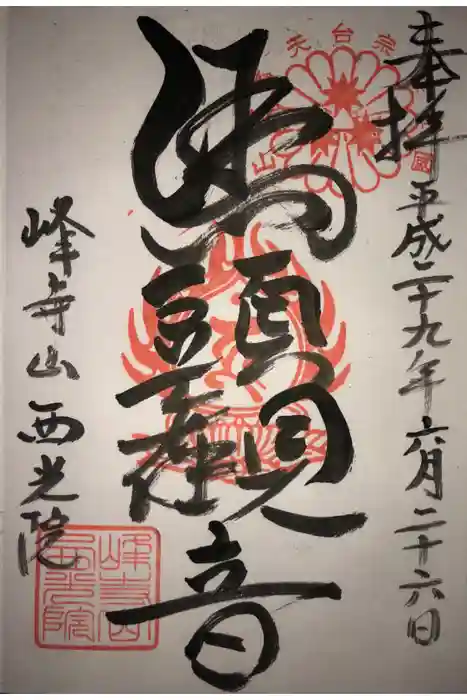 奉拝
平成二十九年六月二十六日
馬頭観音
峰寺山
西光院
天台宗
峰寺山西光院